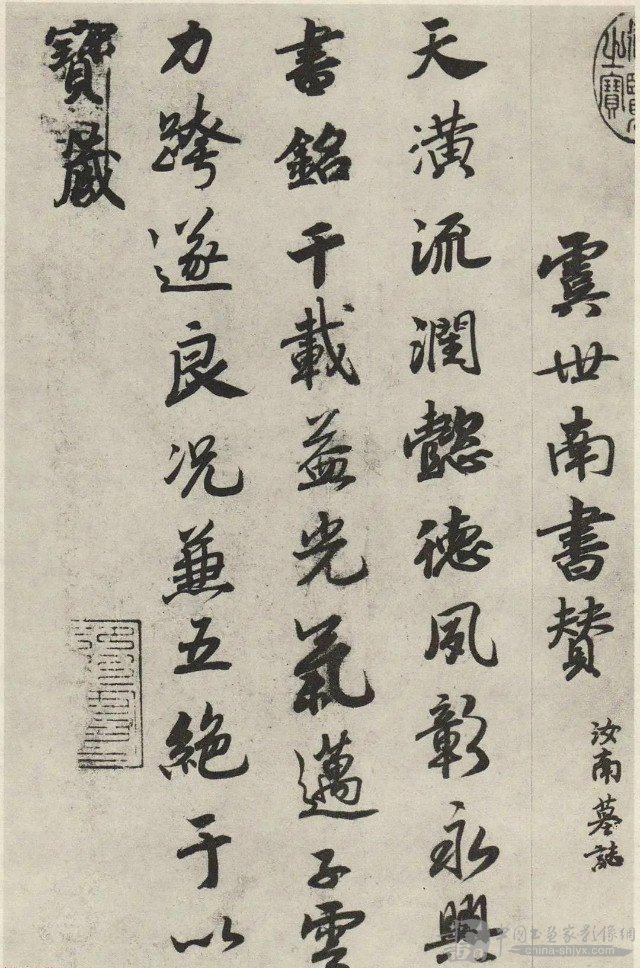 虞世南書賛
汝南墓誌
天潢流潤懿德夙彰永興
書銘千載益光氣邁子雲
力跨遂良况兼五絕于以
寶藏
中国书画家影像网
china-shjyx.com